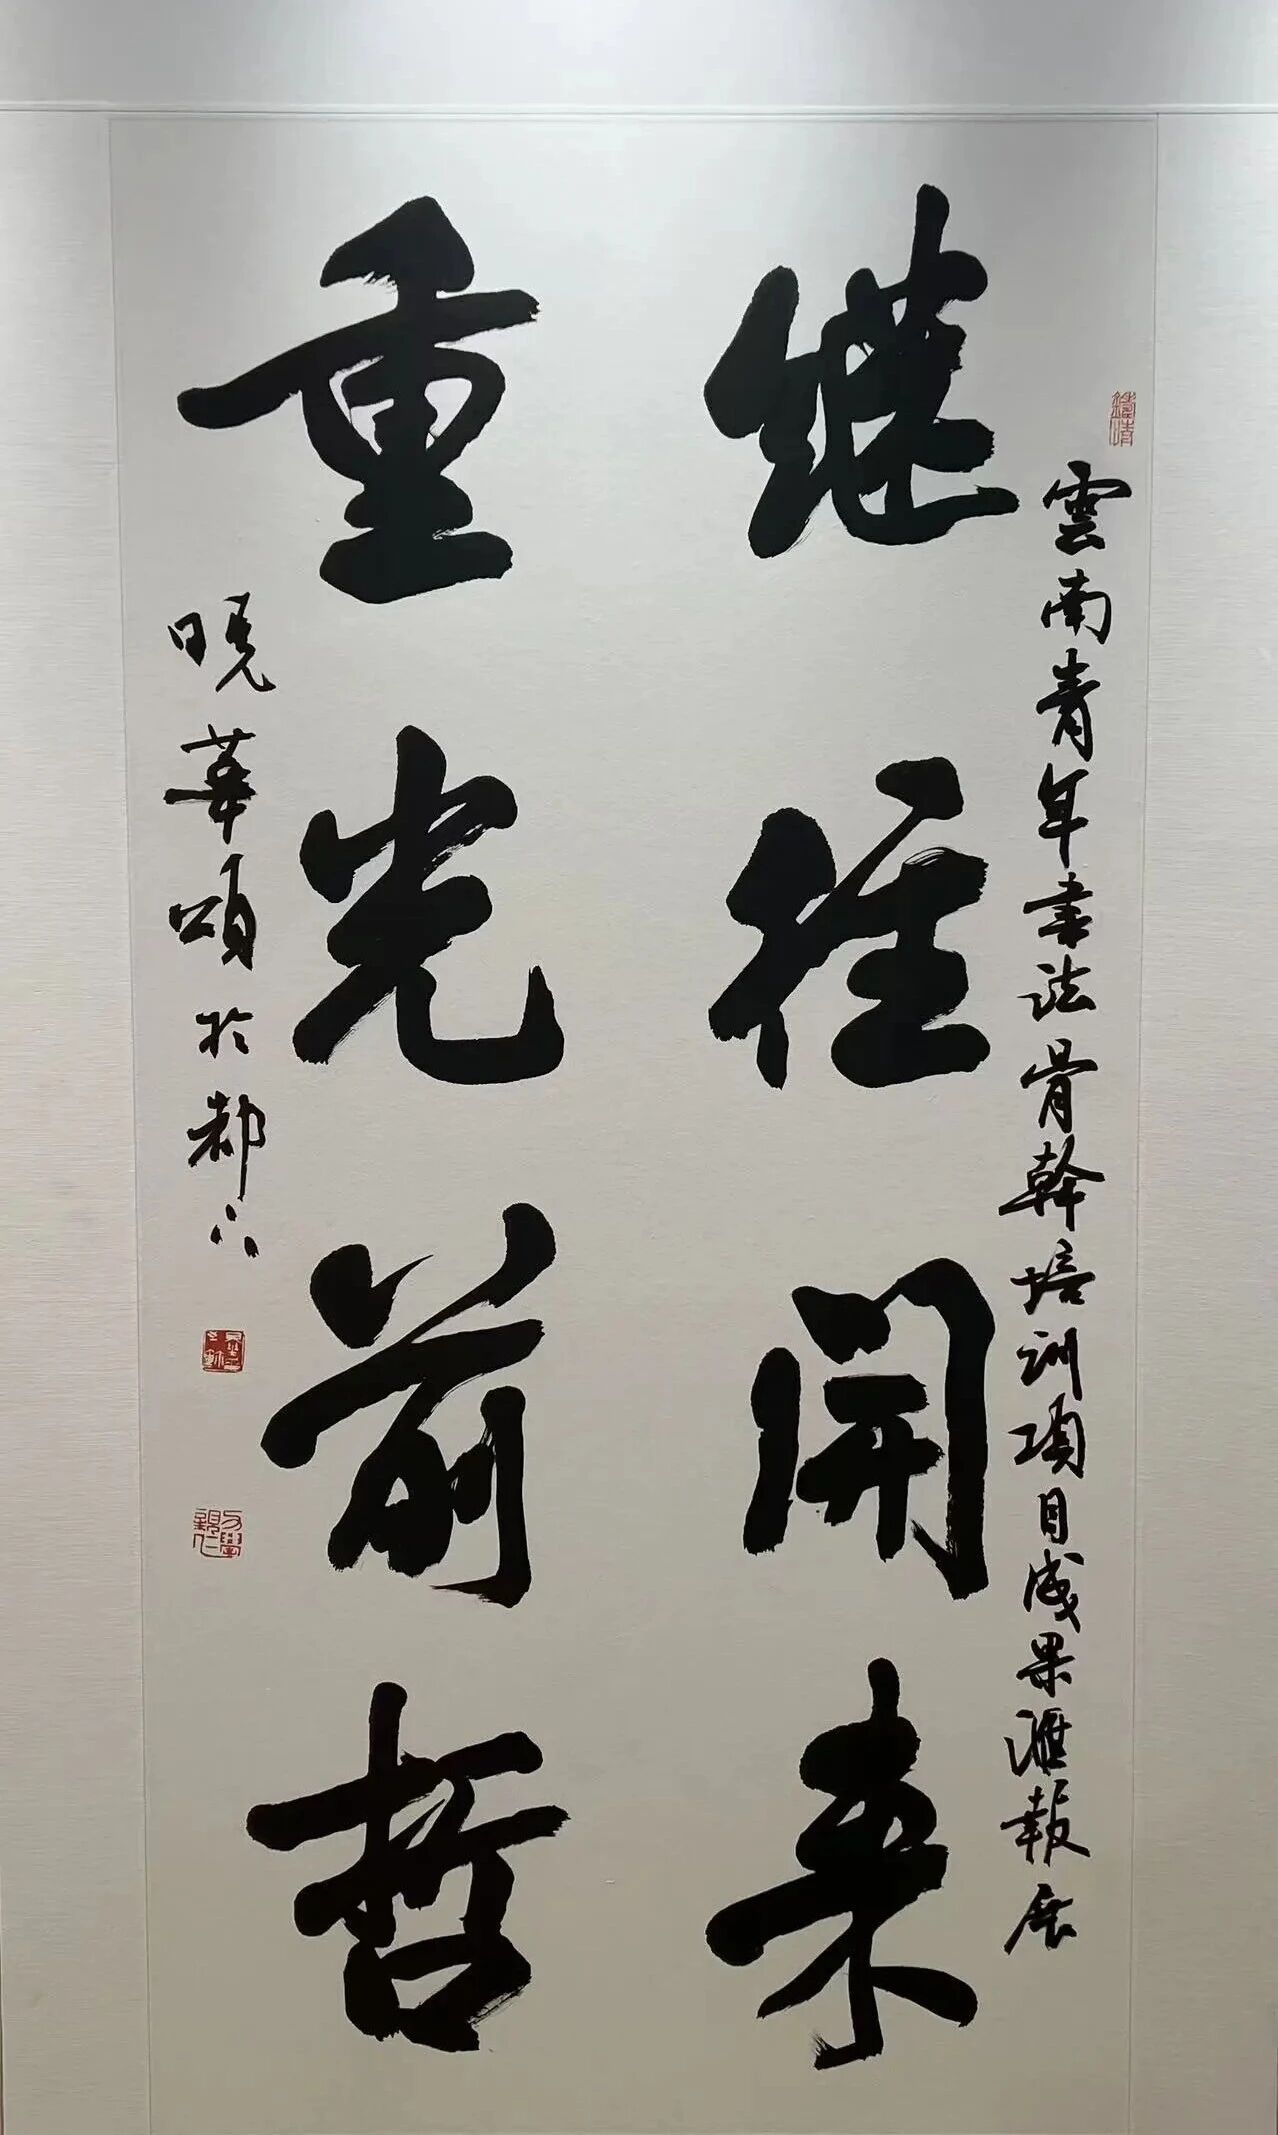 雲南青年書法骨幹培訓項目成果滙報展
継往開来
重光前哲
曉華頌於都下